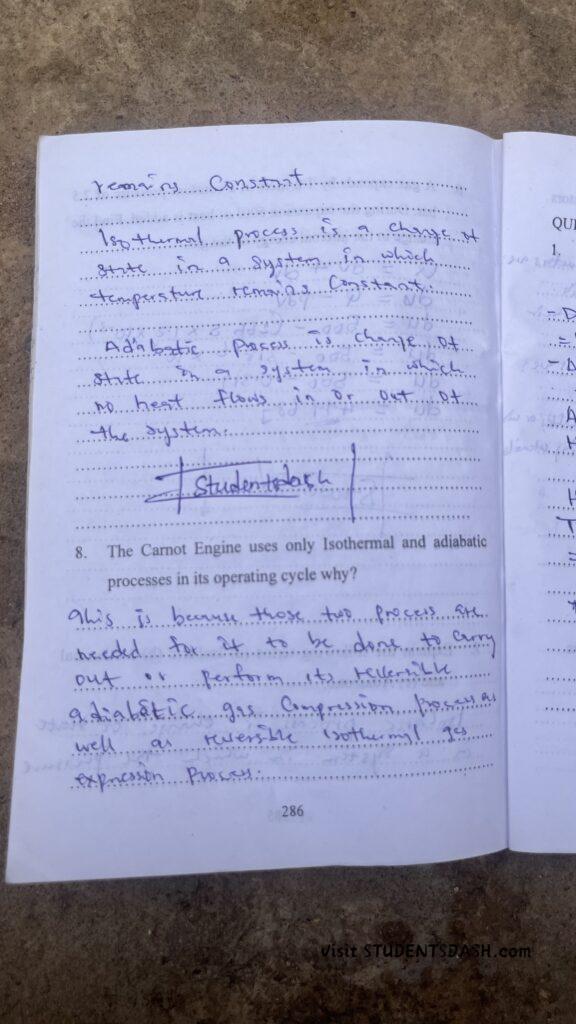 remains Constant
Isothermal process is a change of
state in a system in which
temperature remains Constant.
Adabatic process is change of
state in a system in which
no heat flows in or out of
the system.
Studentsdash
8. The Carnot Engine uses only Isothermal and adiabatic
processes in its operating cycle why?
This is because those two process are
needed for it to be done to carry
out or perform its reversible
adiabatic gas Compression process as
well as reversible isothermal gas
expression process.
286
QUE
1.
Visit STUDENTSDASH.com